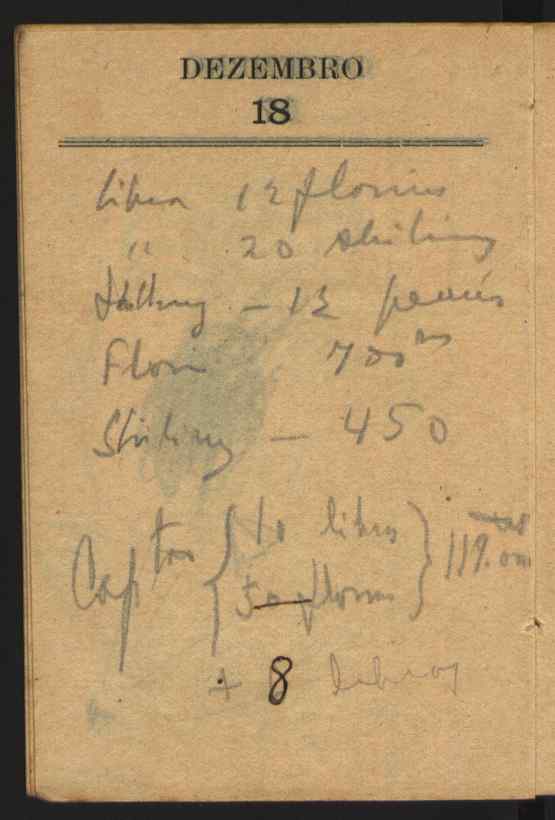 DEZEMBRO
18
Libra 12 florins
" 20 shiling
Shilling - 12 pences
Florin 700
Shiling - 450
10 libras
50 florins
+ 8 libras